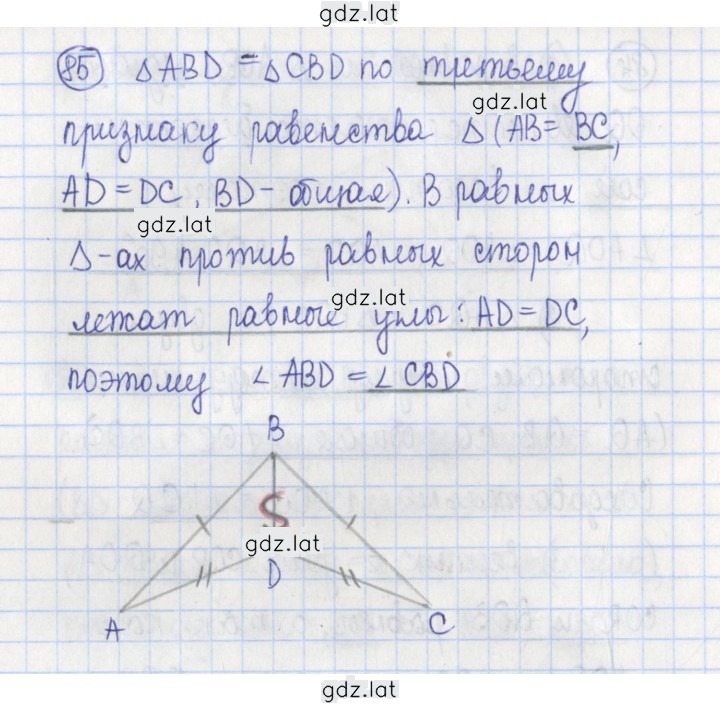 gdz.lat
85 △ABD = △CBD по третьему
gdz.lat
признаку равенства △ (AB = BC,
AD = DC, BD – общая). В равных
gdz.lat
△-ах против равных сторон
gdz.lat
лежат равные углы: AD = DC,
поэтому ∠ABD = ∠CBD
B
gdz.lat
D
A C
gdz.lat